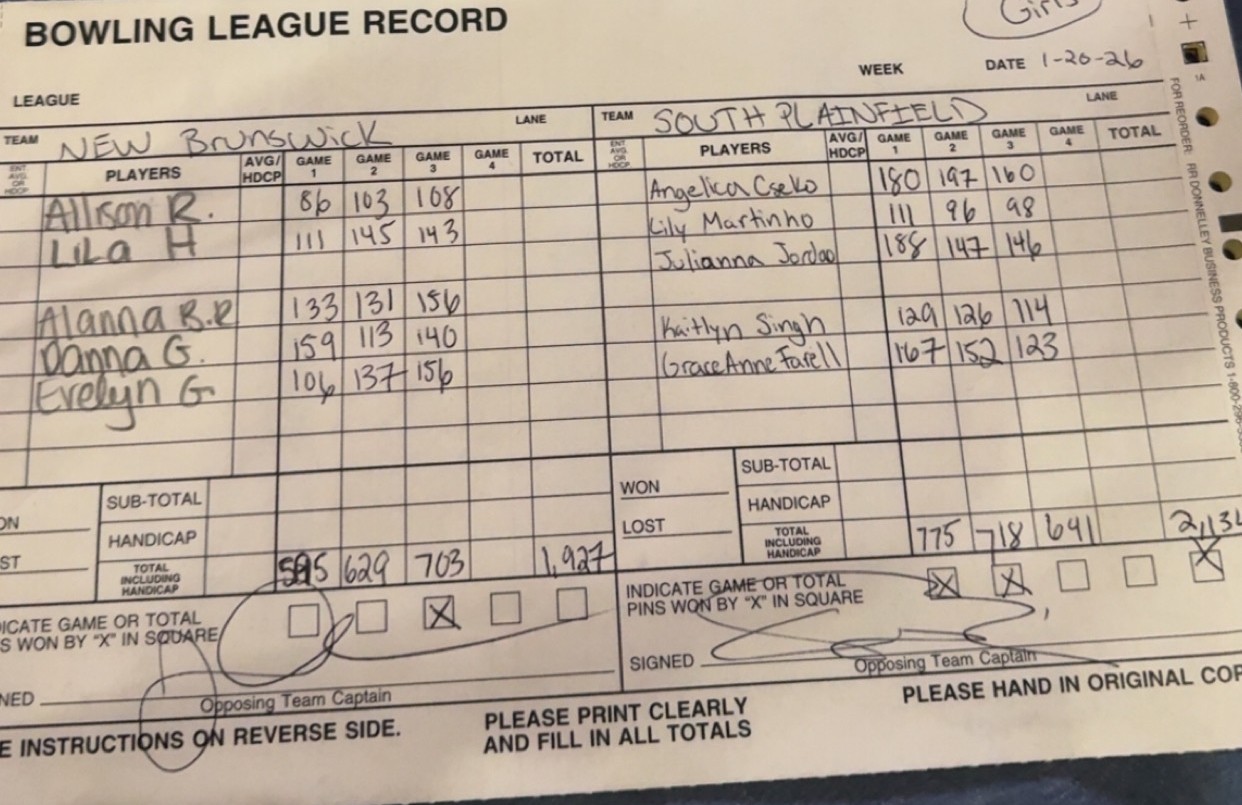 Girls
BOWLING LEAGUE RECORD
WEEK DATE 1-20-26
LEAGUE
TEAM NEW Brunswick LANE TEAM SOUTH PLAINFIELD LANE
ENT. AVG. OR HDCP. PLAYERS AVG/ HDCP GAME 1 GAME 2 GAME 3 GAME 4 TOTAL ENT. AVG. OR HDCP. PLAYERS AVG/ HDCP GAME 1 GAME 2 GAME 3 GAME 4 TOTAL
Allison R. 86 103 108 Angelica Cseko 180 197 160
Lila H 111 145 143 Lily Martinho 111 96 98
Julianna Jordao 188 147 146
Alanna B.R 133 131 156 Kaitlyn Singh 129 126 114
Danna G. 159 113 140 GraceAnne Farell 167 152 123
Evelyn G 106 137 156
SUB-TOTAL WON SUB-TOTAL
ON HANDICAP LOST HANDICAP
ST TOTAL INCLUDING HANDICAP 595 629 703 1,927 TOTAL INCLUDING HANDICAP 775 718 641 2,134
ICATE GAME OR TOTAL INDICATE GAME OR TOTAL
S WON BY "X" IN SQUARE X PINS WON BY "X" IN SQUARE X X X
NED SIGNED
Opposing Team Captain Opposing Team Captain
E INSTRUCTIONS ON REVERSE SIDE. PLEASE PRINT CLEARLY PLEASE HAND IN ORIGINAL COP
AND FILL IN ALL TOTALS
1A
FOR REORDER: RR DONNELLEY BUSINESS PRODUCTS